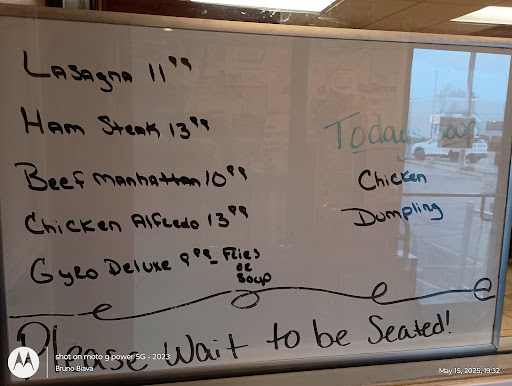 Lasagna 11⁹⁹
Ham Steak 13⁹⁹
Beef Manhattan 10⁹⁹
Chicken Alfredo 13⁹⁹
Gyro Deluxe 9⁹⁹ - Fries
or
Soup
Todays
Chicken
Dumpling
Please Wait to be Seated!
shot on moto g power 5G - 2023
Bruno Blava
May 15, 2025, 19:32